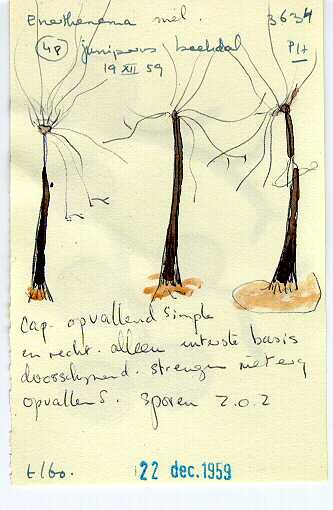 Enerthenema mel. 3634
48 juniperus beekdal Plt
19 XII 59
Cap. opvallend simple
en recht. alleen uiterste basis
doorschijnend. strengen niet erg
opvallend. sporen z.o.z
t/60.
22 dec. 1959